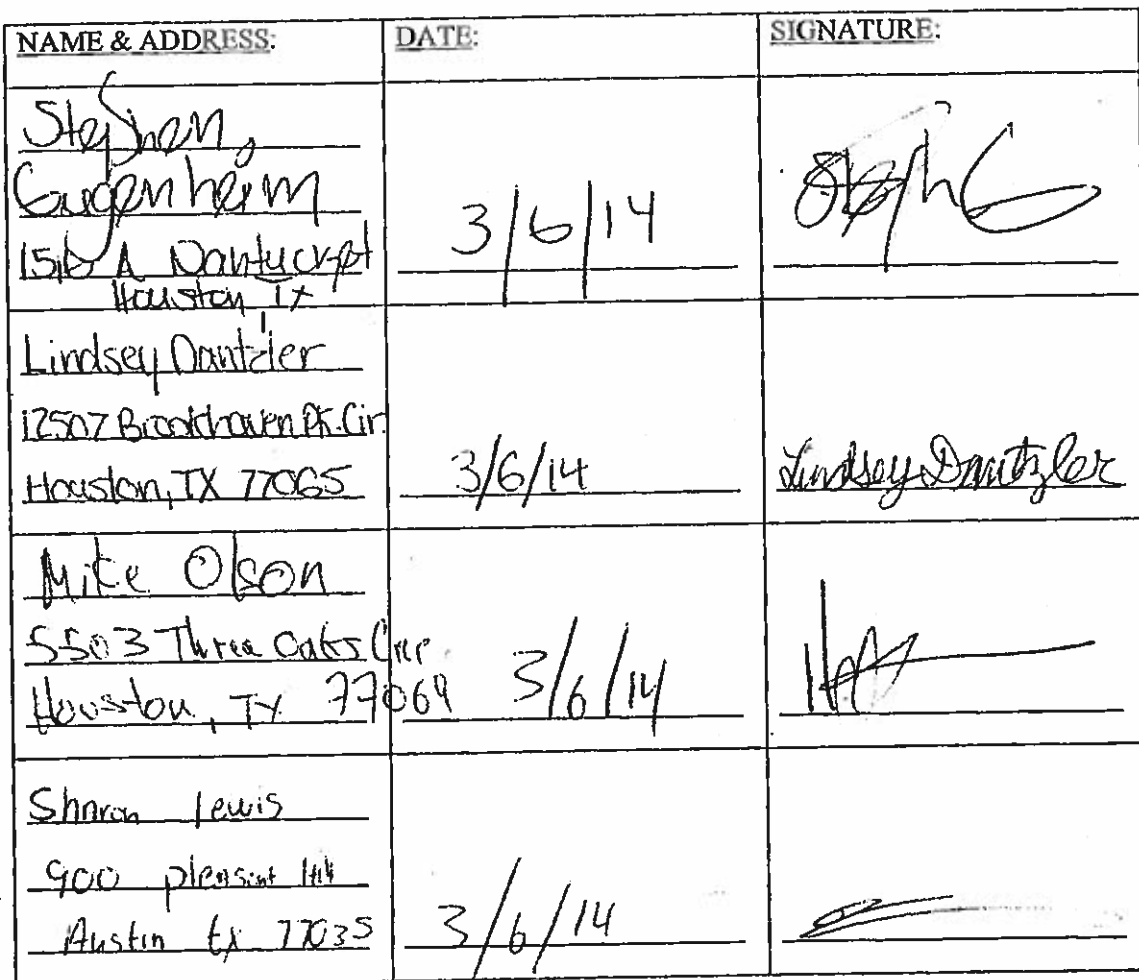 NAME & ADDRESS:
DATE:
SIGNATURE:
Stephen
Gugenheim
A Nantucket
Houston Tx
3/6/14
Lindsey Dantzler
12507 Brookhaven Pk. Cir.
Houston, TX 77065
3/6/14
Lindsey Dantzler
Mike Olson
5503 Three Oaks
Houston, TX 77069
3/6/14
Sharon Lewis
900 pleasant Hill
Austin tx 77035
3/6/14